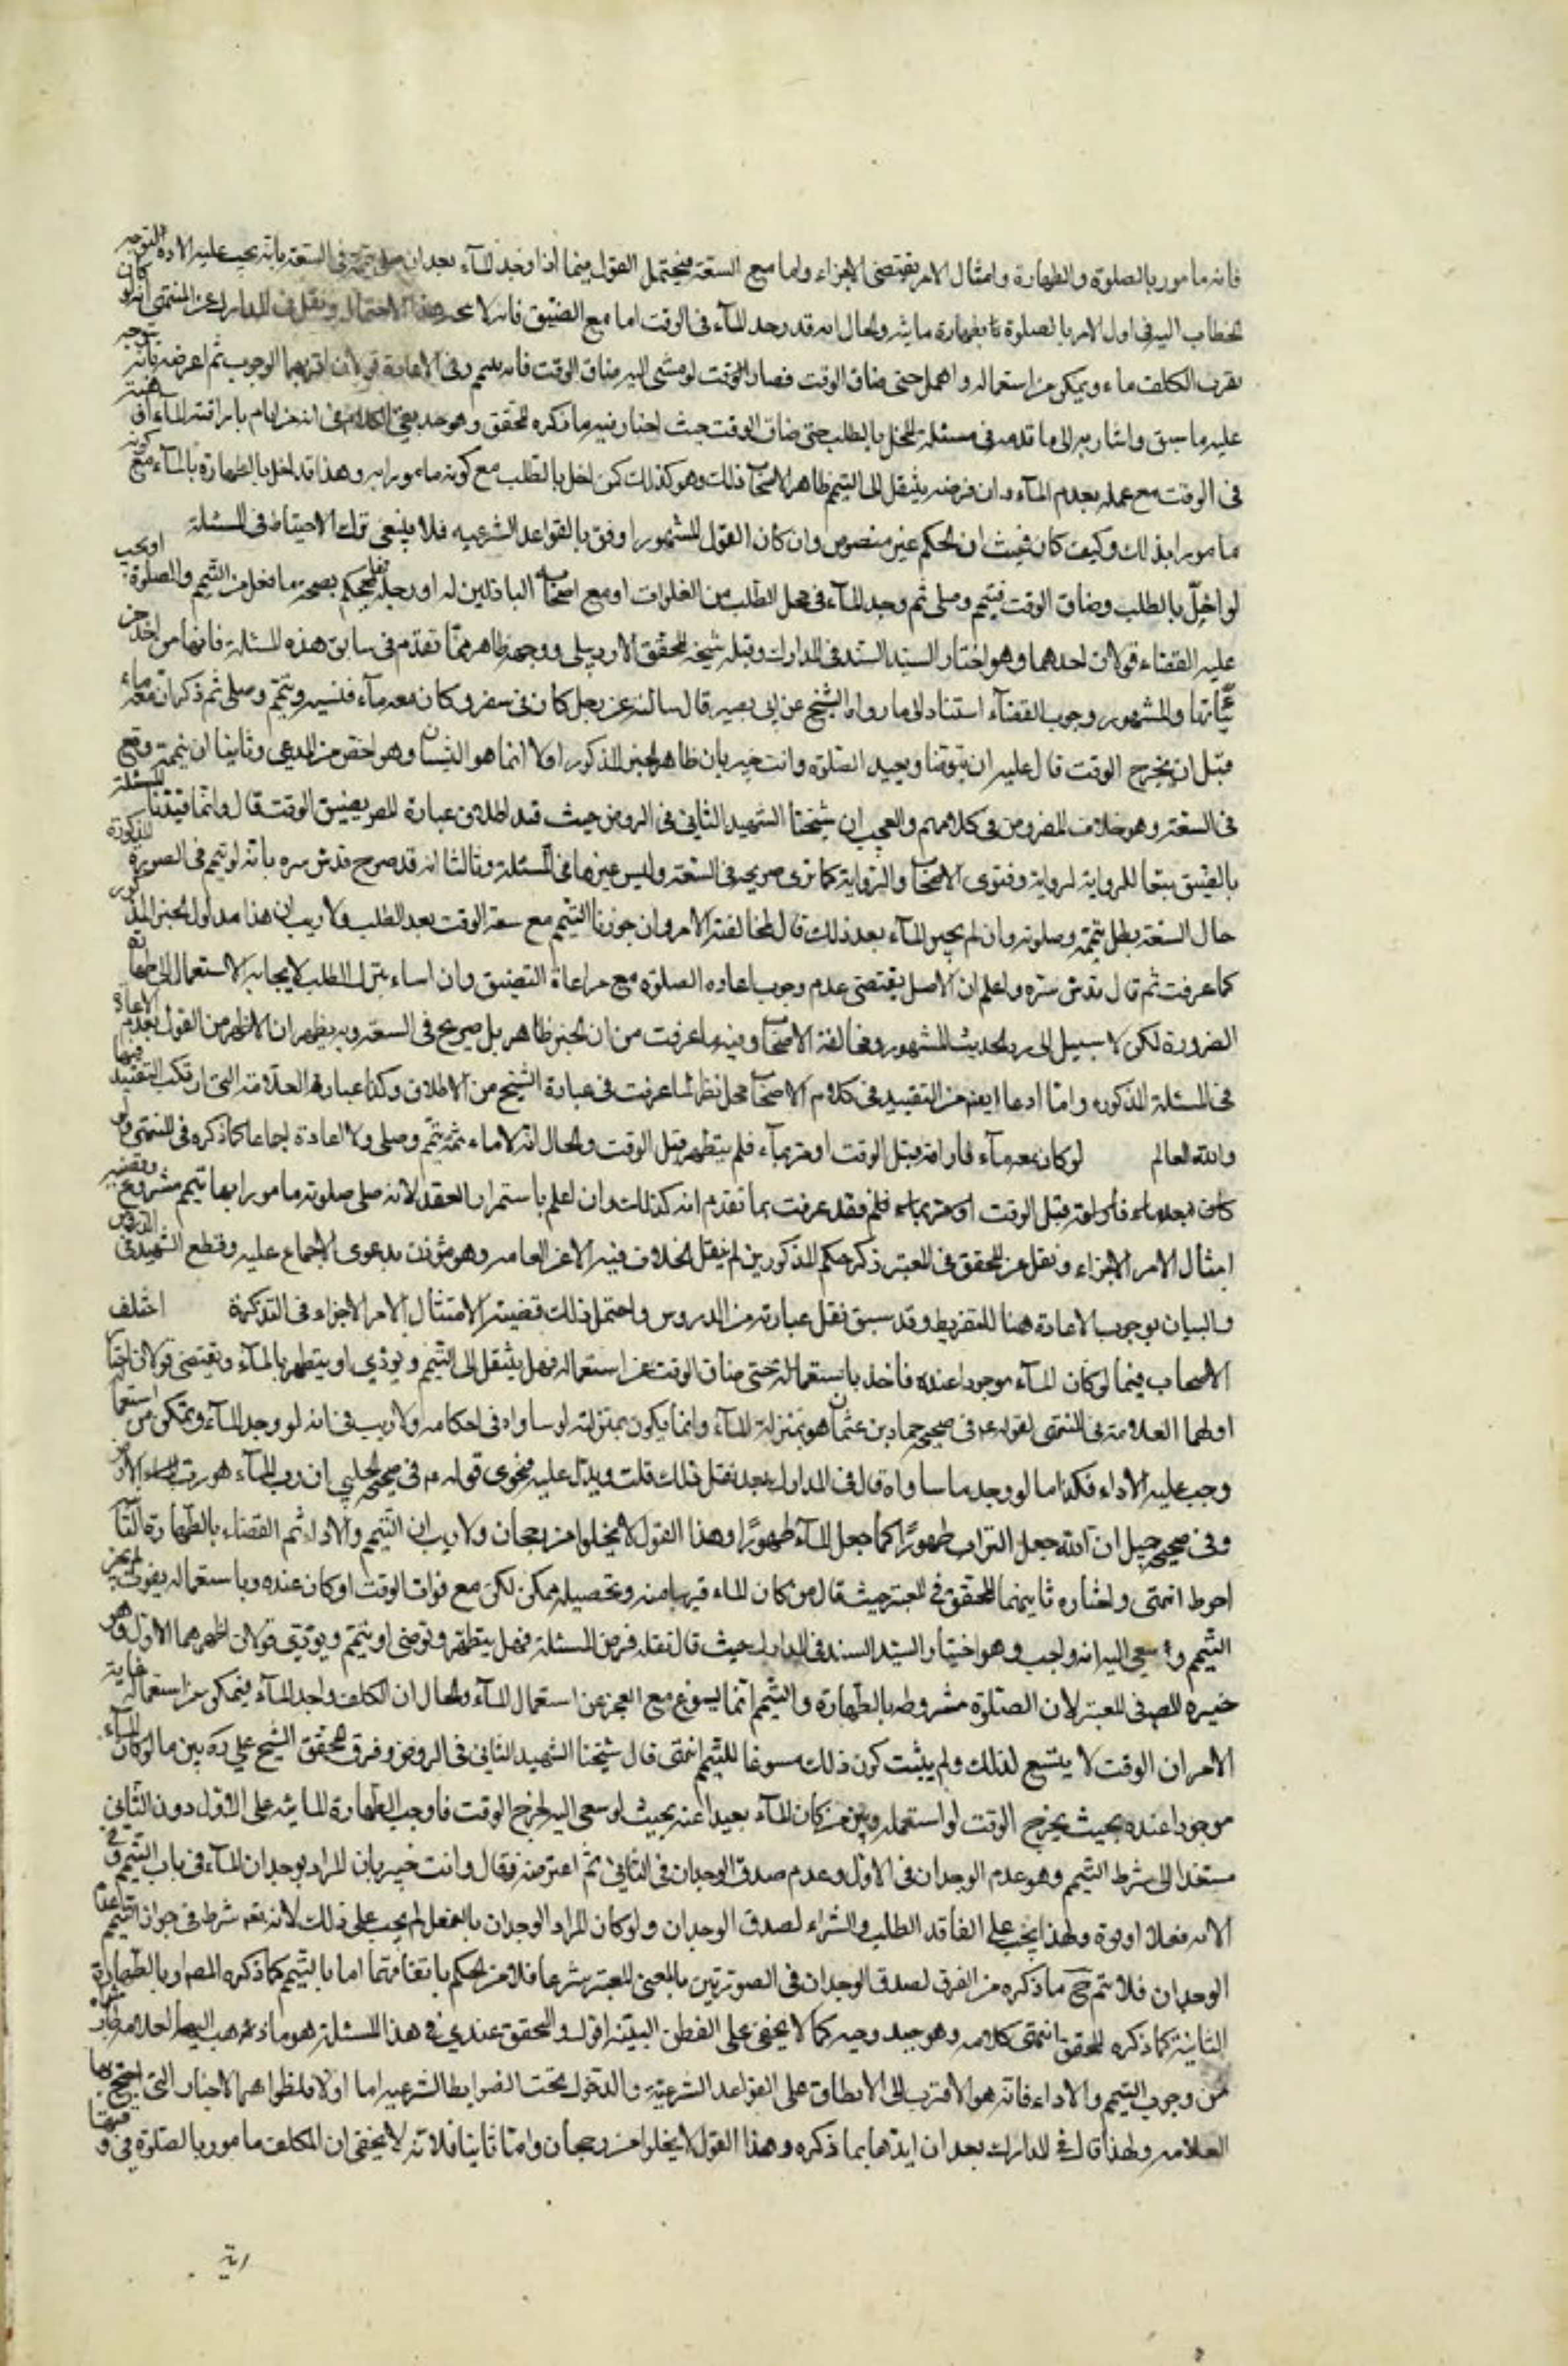 فانه مامور بالصلوة والطهارة وامتثال الامر يقتضى الاجزاء واما مع السعة فيحتمل القول فيما اذا وجد المآء بعد ان صلى بتيممه فى السعة بانه يجب عليه الاعادة لتوجه
الخطاب اليه فى اول الامر بالصلوة بطهارة مائيه والحال انه قد وجد المآء فى الوقت اما مع الضيق فانه لا يجرى هذا الاحتمال ونقل فى المدارك عن المنتهى انه لو كان
بقرب المكلف ماء ويمكن من استعماله واهمل حتى ضاق الوقت فصار الوقت لو مشى اليه ضاق الوقت فانه يتيمم وفى الاعادة قولان اقربهما الوجوب ثم اعرضه بانه يتوجه
عليه ما سبق واشار به الى ما قدمه فى مسئلة المخل بالطلب حتى ضاق الوقت حيث اختار فيه ما ذكره المحقق وهو جيد بقى الكلام فى انه هل يام باراقته المآء
فى الوقت مع عمله بعدم المآء وان فرضه ينتقل الى التيمم ظاهر الاصحاب ذلك وهو كذلك كمن اخل بالطلب مع كونه مامورا به وهذا قد اخل بالطهارة بالمآء مع كونه
مامورا بذلك وكيف كان فحيث ان الحكم غير منصوص وان كان القول المشهور اوفق بالقواعد الشرعيه فلا ينبغى ترك الاحتياط فى المسئلة
لو اخل بالطلب وضاق الوقت فتيمم وصلى ثم وجد المآء فى محل الطلب من الغلوات او مع اصحابه الباذلين له او رحله فهل يحكم بصحة ما فعل من التيمم والصلوة او يجب
عليه القضاء قولان احدهما وهو اختيار السيد السند فى المدارك وقبله شيخه المحقق الاردبيلى ووجهه ظاهر مما تقدم فى سابق هذه المسئلة فانها من احد
جزئياتها والمشهور وجوب القضآء استنادا الى ما رواه الشيخ عن ابى بصير قال سالته عن رجل كان فى سفر وكان معه مآء فنسيه وتيمم وصلى ثم ذكر ان معه ماء
قبل ان يخرج الوقت قال عليه ان يتوضأ ويعيد الصلوة وانت خبير بان ظاهر الخبر المذكور اولا انما هو النسيان وهو اخص من المدعى وثانيا ان تيممه وقع
فى السعة وهو خلاف المفروض فى كلامهم والعجب ان شيخنا الشهيد الثانى فى الروض حيث قيد اطلاق عبارة المص بضيق الوقت قال وانما قيدنا المسئلة
بالضيق تبعا للرواية وفتوى الاصحاب والرواية كما ترى صريحه فى السعة وليس غيرها فى المسئلة وثالثا انه قد صرح قدس سره بانه لو تيمم فى الصورة المذكورة
حال السعة بطل تيممه وصلوته وان لم يجد المآء بعد ذلك قال لمخالفة الامر وان جوزنا التيمم مع سعة الوقت بعد الطلب ولا ريب ان هذا مدلول الخبر المذكور
كما عرفت ثم قال قدس سره واعلم ان الاصل يقتضى عدم وجوب اعاده الصلوة مع مراعاة التضييق وان اساء بترك الطلب لايجابه الاستعمال الى طهارة
الضرورة لكن لا سبيل الى رد الحديث المشهور ومخالفة الاصحاب وفيه ما عرفت من ان الخبر ظاهر بل صريح فى السعة وبه يظهر ان الاظهر من القول بعدم الاعادة
فى المسئلة المذكوره واما ادعا ايضا من التقييد فى كلام الاصحاب محل نظر لما عرفت فى عبارة الشيخ من الاطلاق وكذا عبارة العلامة التى ارتكب التقييد فيها
والله العالم لو كان معه مآء فاراقه قبل الوقت او مر بمآء فلم يتطهر قبل الوقت والحال انه لا ماء ثمة تيمم وصلى ولا اعادة اجماعا كما ذكره فى المنتهى ولو
كان معه ماء فاراقه قبل الوقت او مر بماء فلم فقد عرفت بما تقدم انه كذلك وان اعلم باستمرار الفقد لانه صلى صلوته مامورا بها بتيمم مشروع وقضية
امتثال الامر الاجزاء ونقل عن المحقق فى المعتبر ذكر حكم المذكورين لم ينقل الخلاف فيه الا عن العامه وهو مؤذن بدعوى الاجماع عليه وقطع الشهيد فى الدروس
والبيان بوجوب الاعادة هنا للتفريط وقد سبق نقل عبارته من الدروس واحتمل ذلك قضية الامتثال الامر الاجزاء فى التذكرة اختلف
الاصحاب فيما لو كان المآء موجودا عنده فاخل باستعماله حتى ضاق الوقت عن استعماله فهل ينتقل الى التيمم ويؤدى او يتطهر بالمآء ويقتضى قولان اختار
اولهما العلامة فى المنتهى لقوله ع فى صحيح حماد بن عثمان هو بمنزلة المآء وانما يكون بمنزلته لو ساواه فى احكامه ولا ريب فى انه لو وجد المآء وتمكن من استعماله
وجب عليه الاداء فكذا ما لو وجد ما ساواه قال فى المدارك بعد نقل ذلك قلت ويدل عليه فحوى قوله ع فى صحيح الحلبى ان رب المآء هو رب الارض
وفى صحيح جميل ان الله جعل التراب طهورًا كما جعل المآء طهورًا وهذا القول لا يخلوا من رجحان ولا ريب ان التيمم والاداء ثم القضاء بالطهارة المآ
احوط انتهى واختار ثانيهما المحقق فى المعتبر حيث قال من كان المآء قريبا منه وتحصيله ممكن لكن مع فوات الوقت او كان عنده وباستعماله يفوت لم يجز
التيمم وسعى اليه لانه واجب وهو اختيار السيد السند فى المدارك حيث قال نقله فرض المسئلة فهل يتطهر ويقضى او يتيمم ويؤدى قولان اظهرهما الاول وهو
خيره المص فى المعتبر لان الصلوة مشروطه بالطهارة والتيمم انما يسوغ مع العجز عن استعمال المآء والحال ان المكلف واجد للمآء فيتمكن من استعماله غاية
الامر ان الوقت لا يتسع لذلك ولم يثبت كون ذلك مسوغا للتيمم انتهى قال شيخنا الشهيد الثانى فى الروض وفرق المحقق الشيخ على ره بين ما لو كان المآء
موجودا عنده بحيث يخرج الوقت لو استعمله وبين من كان المآء بعيدا عنه بحيث لو سعى اليه لخرج الوقت فاوجب الطهارة المائيه على الاول دون الثانى
مستندا الى شرط التيمم وهو عدم الوجدان فى الاول وعدم صدق الوجدان فى الثانى ثم اعترضه فقال وانت خبير بان المراد بوجدان المآء فى باب التيمم
الامه فعلا او قوة ولهذا يجب على الفاقد الطلب والشراء لصدق الوجدان ولو كان المراد الوجدان بالفعل لم يجب على ذلك لانه نعم شرط فى جواز التيمم عدم
الوجدان فلا يتم ح ما ذكره من الفرق لصدق الوجدان فى الصورتين بالمعنى المعتبر شرعا فلا من الحكم باتفاقهما اما بالتيمم كما ذكره المص او بالطهارة
الثانية كما ذكره المحقق انتهى كلامه وهو جيد وجيه كما لا يخفى على الفطن البيته اقول والتحقق عندى فى هذا المسئلة هو ما ذهب اليه العلامه
من وجوب التيمم والاداء فانه هو الاقرب الى الانطباق على القواعد الشرعية والدخول تحت الضوابط الشرعيه اما اولا فلظواهر الاخبار التى احتج بها
العلامه ولهذا قال فى المدارك بعد ان ايدها بما ذكره وهذا القول لا يخلوا من رجحان واما ثانيا فلانه لا يخفى ان المكلف مامور بالصلوة فى وقتها